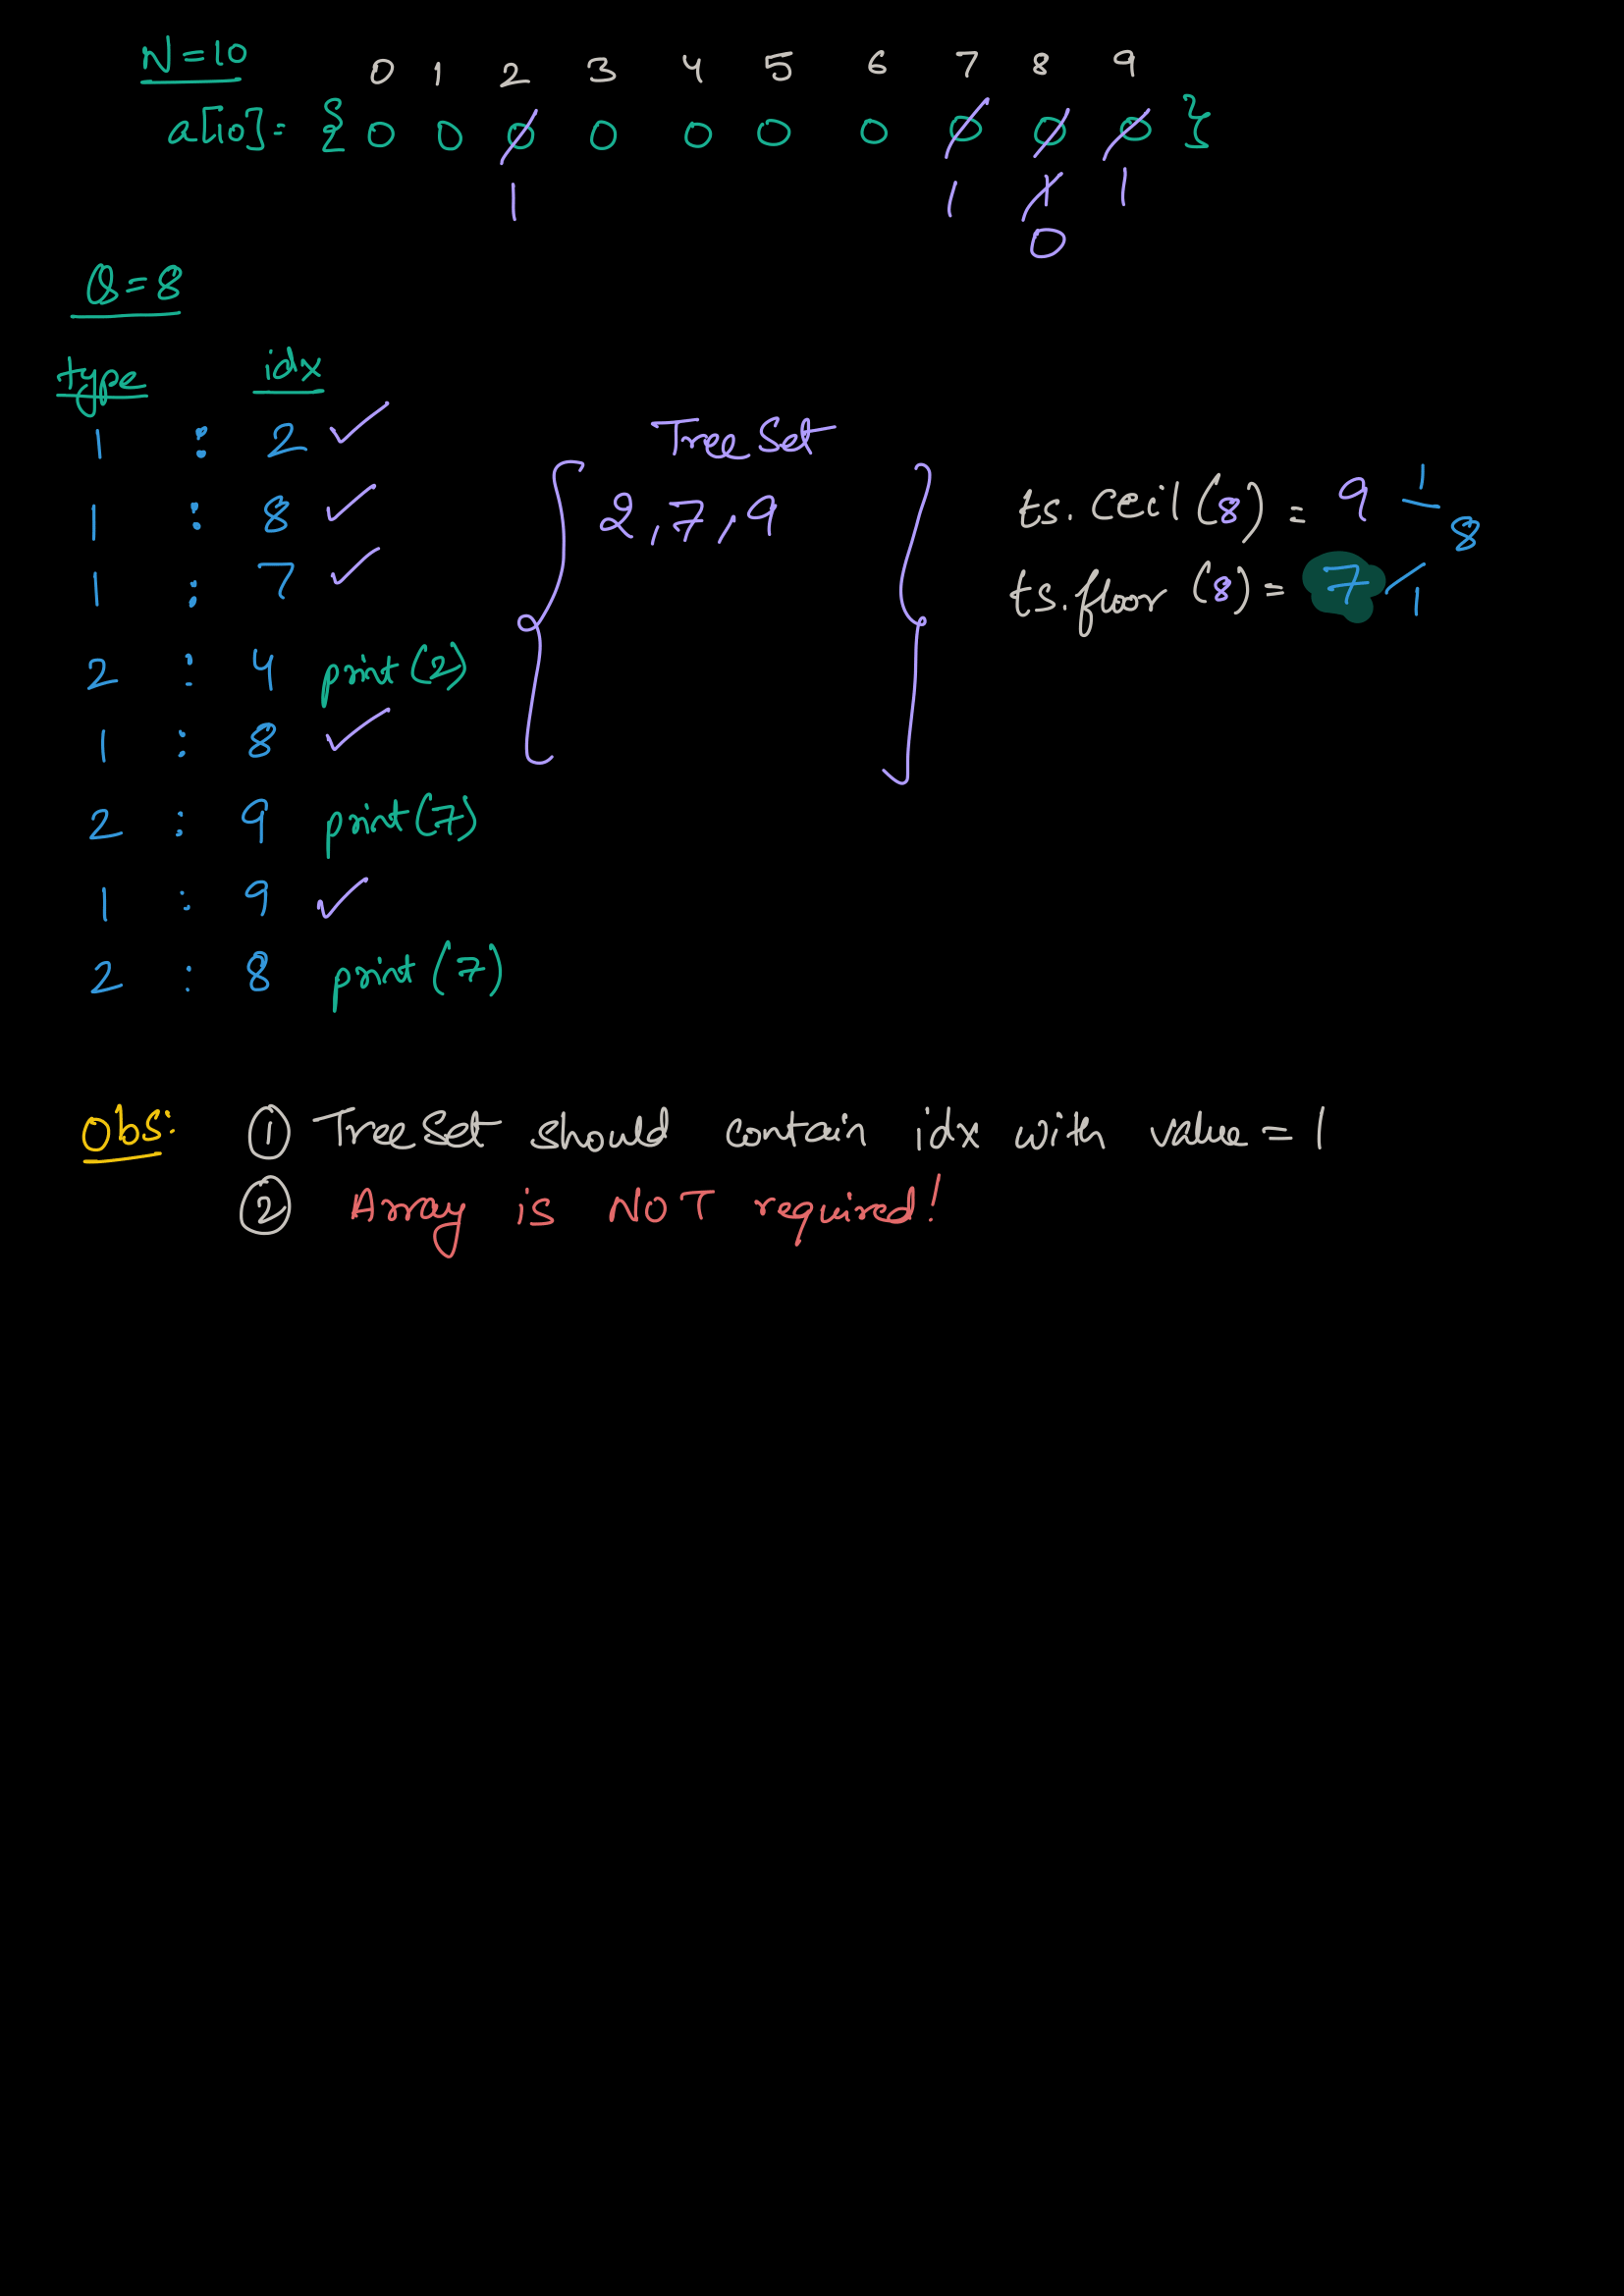 N=10
0 1 2 3 4 5 6 7 8 9
a[10]= { 0 0 0 0 0 0 0 0 0 0 }
1 1 1 1
0
Q=8
type idx
1 : 2 ✓
1 : 8 ✓
1 : 7 ✓
2 : 4 print(2)
1 : 8 ✓
2 : 9 print(7)
1 : 9 ✓
2 : 8 print(7)
TreeSet
{ 2,7,9 }
ts.ceil(8) = 9 1
8
ts.floor(8)= 7 1
Obs: ① TreeSet should contain idx with value = 1
② Array is NOT required!